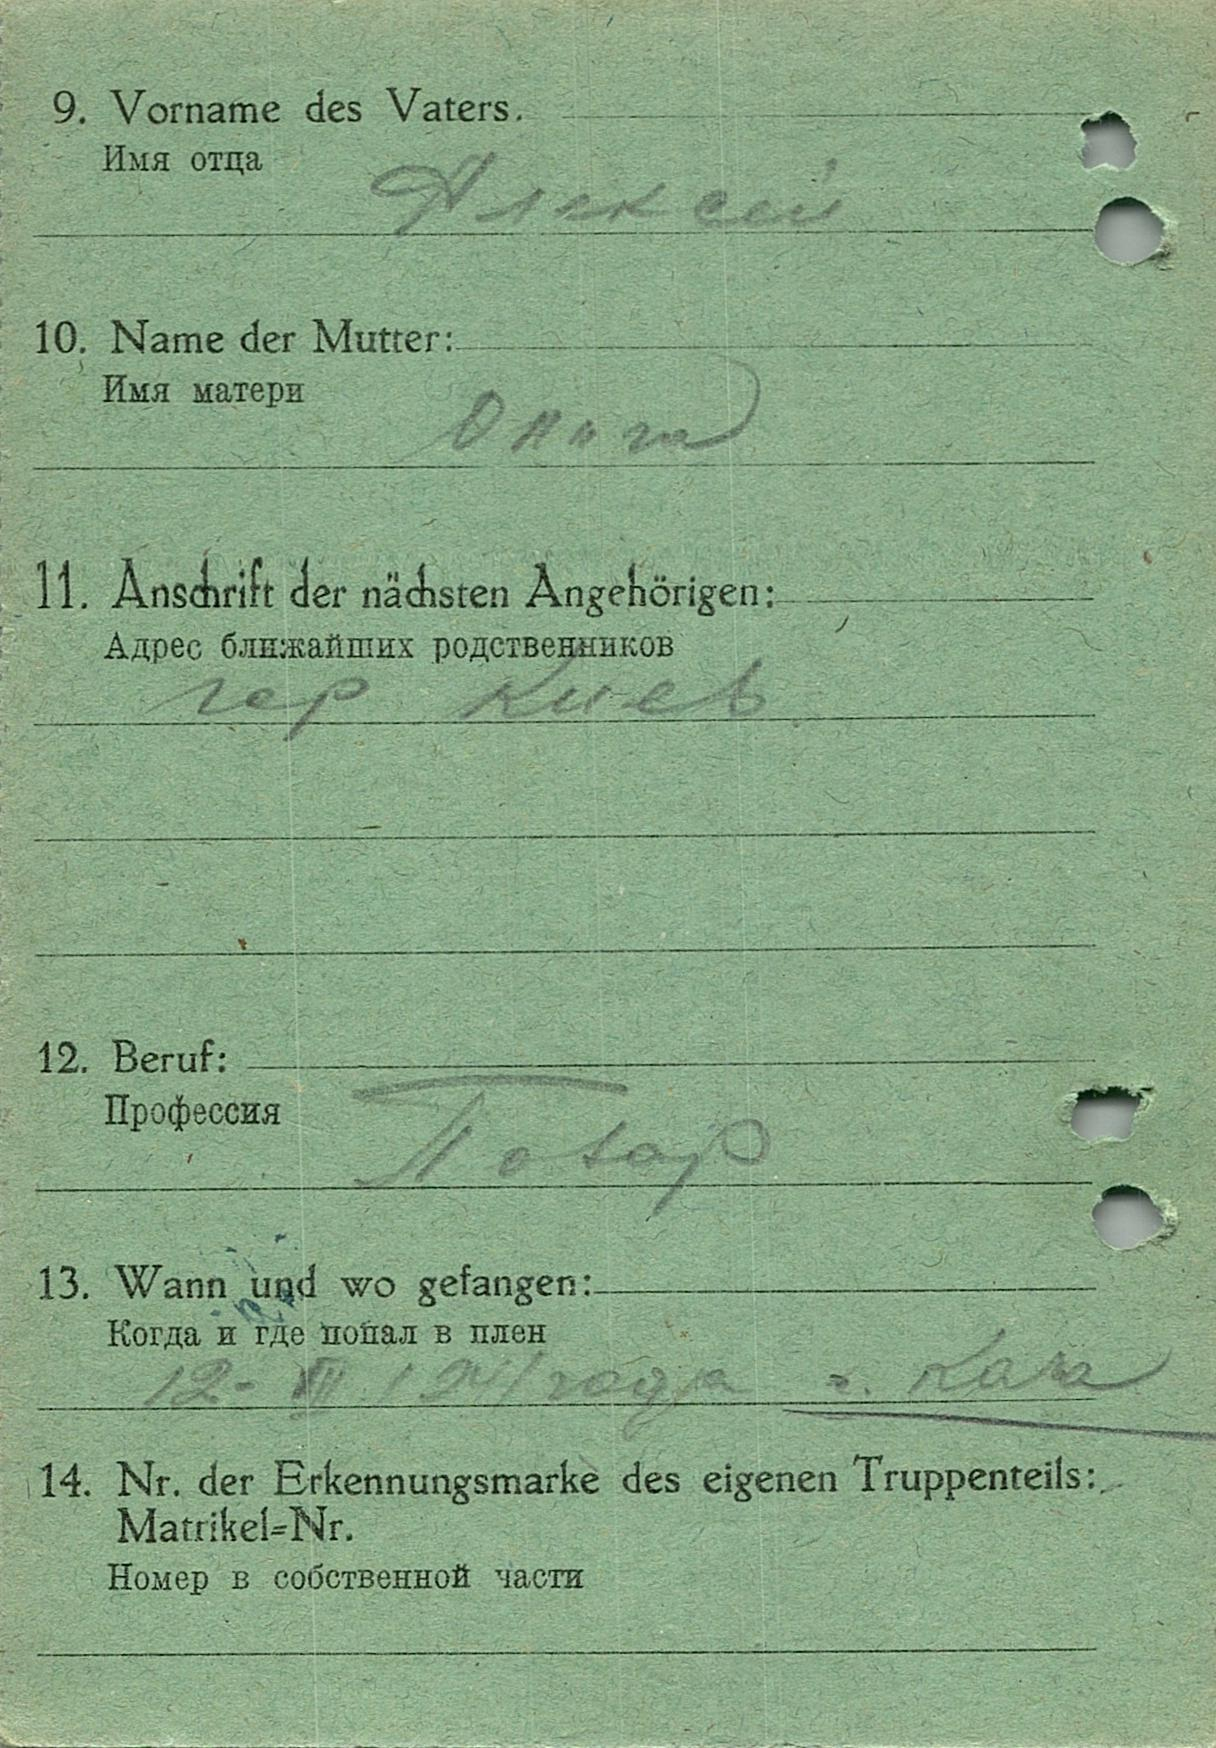 9. Vorname des Vaters.
Имя отца
Алексей
10. Name der Mutter:
Имя матери
11. Anschrift der nächsten Angehörigen:
Адрес ближайших родственников
гор Киев
12. Beruf:
Профессия
Повар
13. Wann und wo gefangen:
Когда и где попал в плен
12- 1941 года г.
14. Nr. der Erkennungsmarke des eigenen Truppenteils:
Matrikel=Nr.
Номер в собственной части